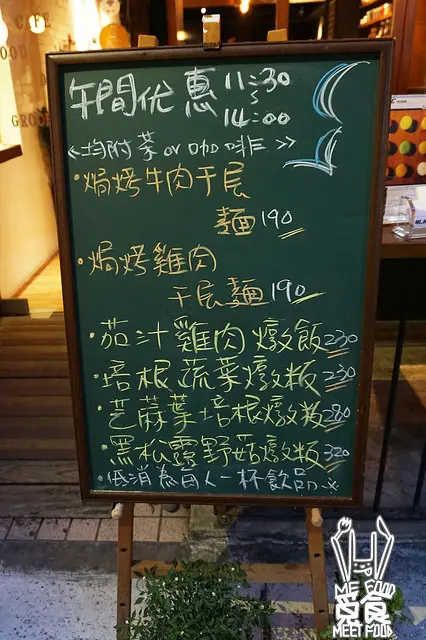 CAFE
OOD
GRO
午間优惠 11:30
~
14:00
«均附茶 or 咖啡»
·焗烤牛肉千层
麵 190
·焗烤雞肉
千层麵 190
·茄汁雞肉燉飯 230
·培根蔬菜燉飯 230
·芝麻葉培根燉飯 280
·黑松露野菇燉飯 320
·低消為每人一杯飲品
ME FOOD
覓食
MEET FOOD